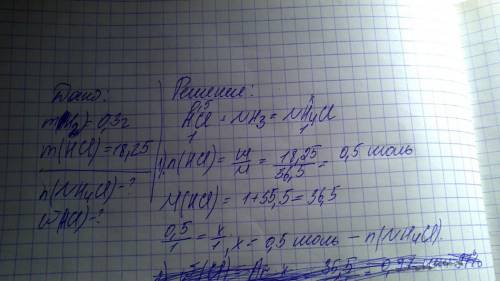 Дано:
m(H2) = 0,3г
m(HCl) = 18,25
n(NH4Cl) - ?
W(Cl) - ?
Решение:
0,5 x
HCl + NH3 = NH4Cl
1 1
1) n(HCl) = m/M = 18,25/36,5 = 0,5 моль
M(HCl) = 1+35,5 = 36,5
0,5/1 = x/1, x = 0,5 моль - n(NH4Cl).